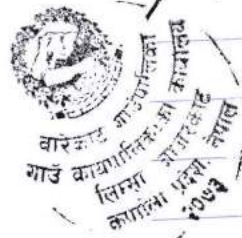 वारेकोट गाउँपालिका
गाउँ कार्यपालिकाको कार्यालय
लिम्सा जाजरकोट
कर्णाली प्रदेश नेपाल
२०७३